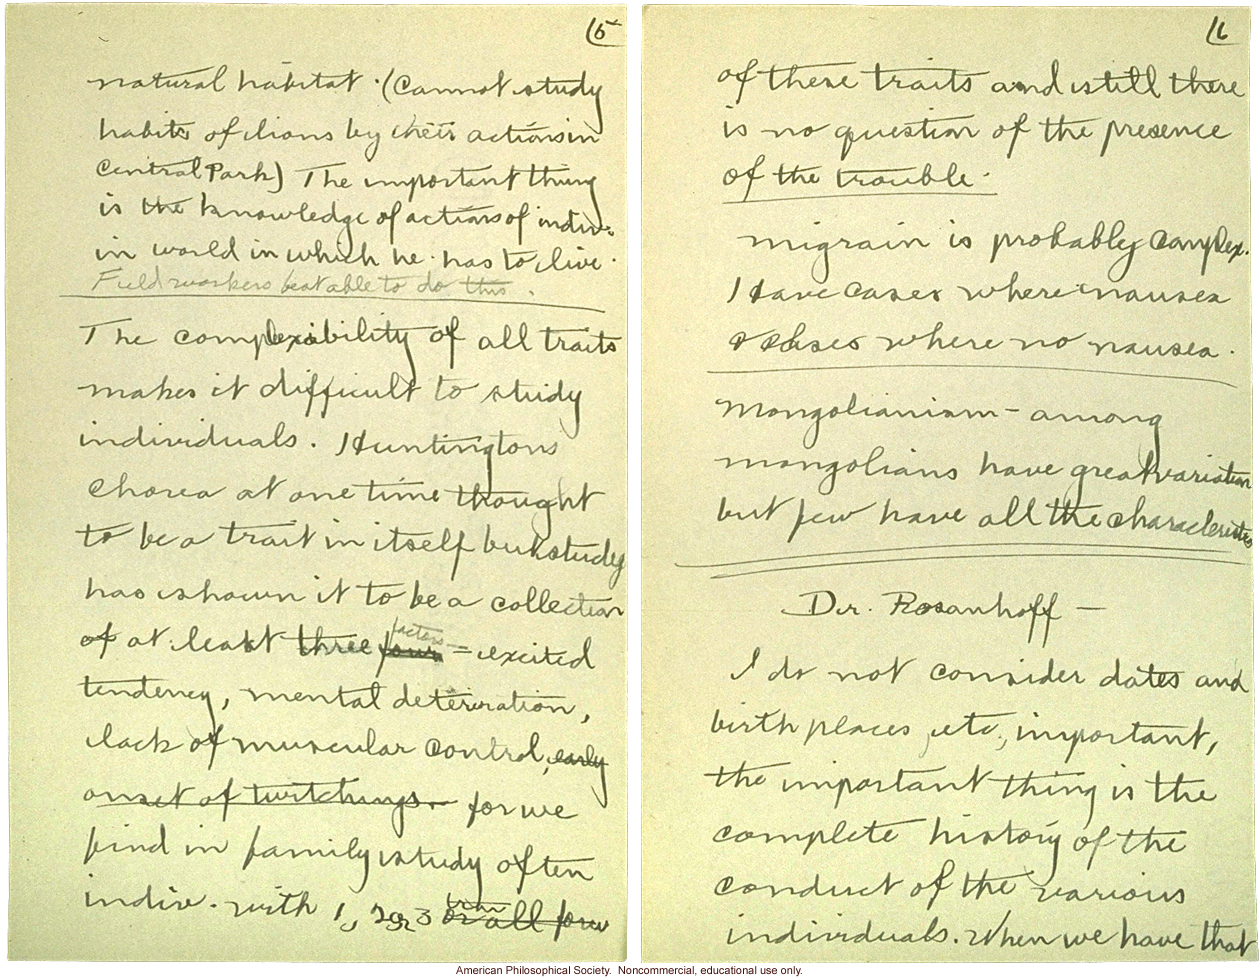 15
natural habitat. (Cannot study
habits of lions by their actions in
Central Park) The important thing
is the knowledge of actions of indiv.
in world in which he has to live.
Field workers best able to do this.
The complexibility of all traits
makes it difficult to study
individuals. Huntingtons
chorea at one time thought
to be a trait in itself but study
has shown it to be a collection
factors
of at least three four = excited
tendency, mental deterioration,
lack of muscular control, early
onset of twitchings. for we
find in family study often
indiv. with 1, 2 or 3 or all four
16
of these traits and still there
is no question of the presence
of the trouble.
migrain is probably complex.
Have cases where nausea
& cases where no nausea.
Mongolianism - among
mongolians have great variation
but few have all the characteristics
Dr. Rosanhoff —
I do not consider dates and
birth places, etc, important,
the important thing is the
complete history of the
conduct of the various
individuals. When we have that
American Philosophical Society. Noncommercial, educational use only.